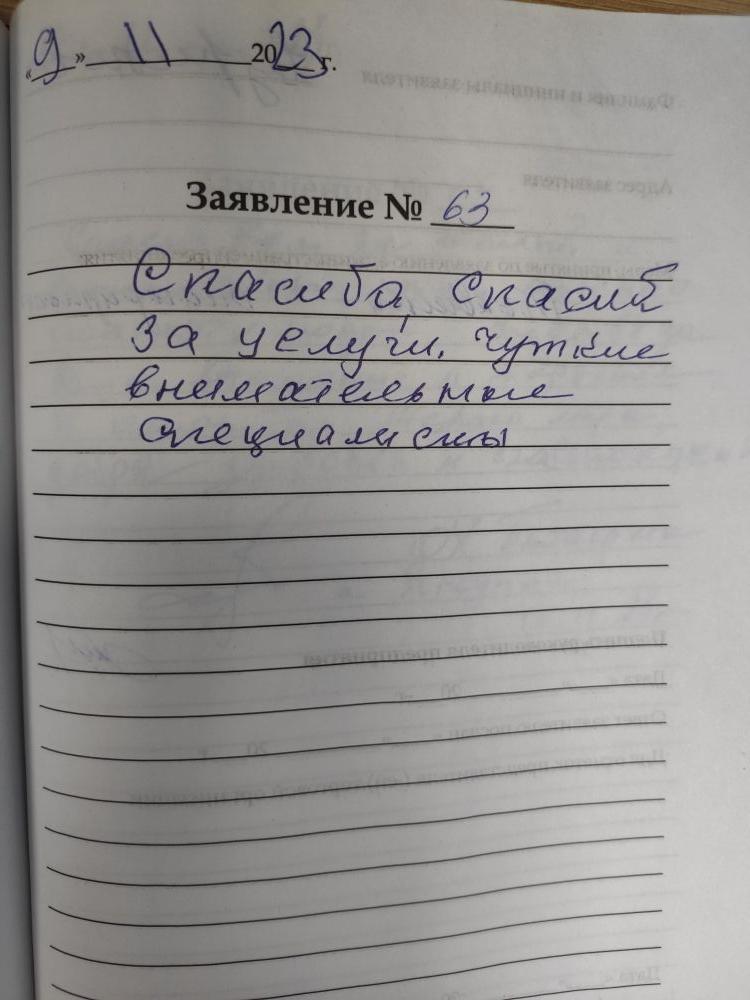 «9» 11 2023 г.
Заявление № 63
Спасиба, спасиб
за услуги, чуткие
внимательные
специалисты